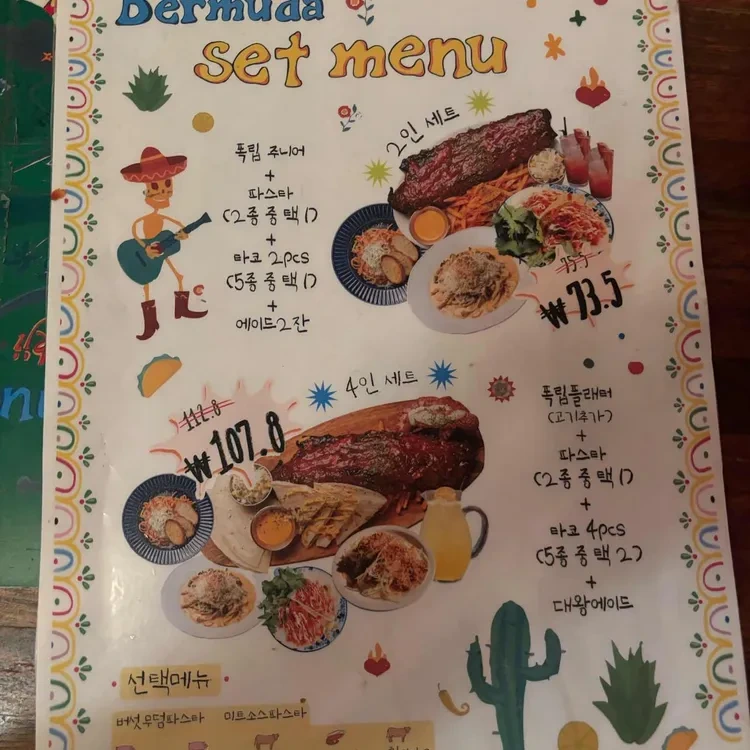 Bermuda
set menu
2인 세트
폭립 주니어
+
파스타
(2종 중 택1)
+
타코 2pcs
(5종 중 택1)
+
에이드2잔
75.5
₩73.5
4인 세트
112.8
₩107.8
폭립플래터
(고기추가)
+
파스타
(2종 중 택1)
+
타코 4pcs
(5종 중 택2)
+
대왕에이드
선택메뉴
버섯우덤파스타 미트소스파스타